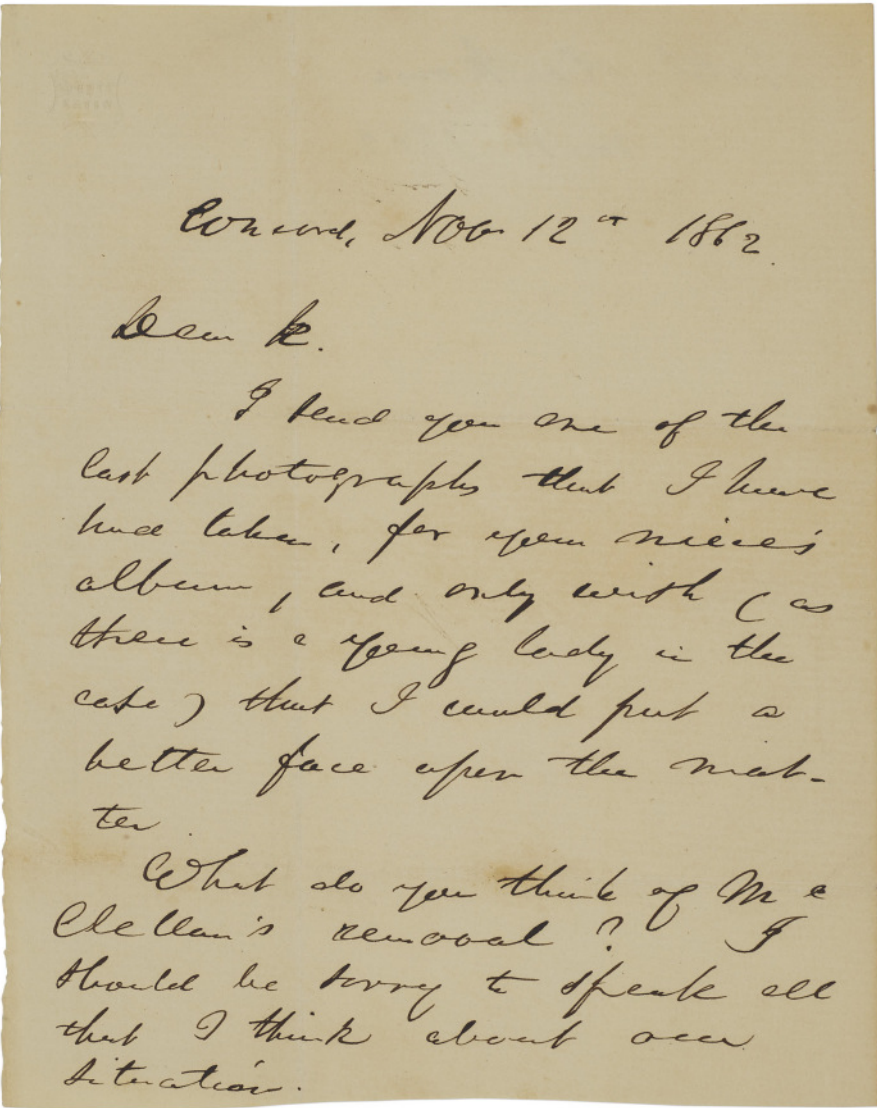 Concord, Nov 12th 1862.
Dear K.
I send you one of the
last photographs that I have
had taken, for your niece's
album, and only wish (as
there is a young lady in the
case) that I could put a
better face upon the mat-
ter.
What do you think of Mc
Clellan's removal? I
should be sorry to speak all
that I think about our
situation.